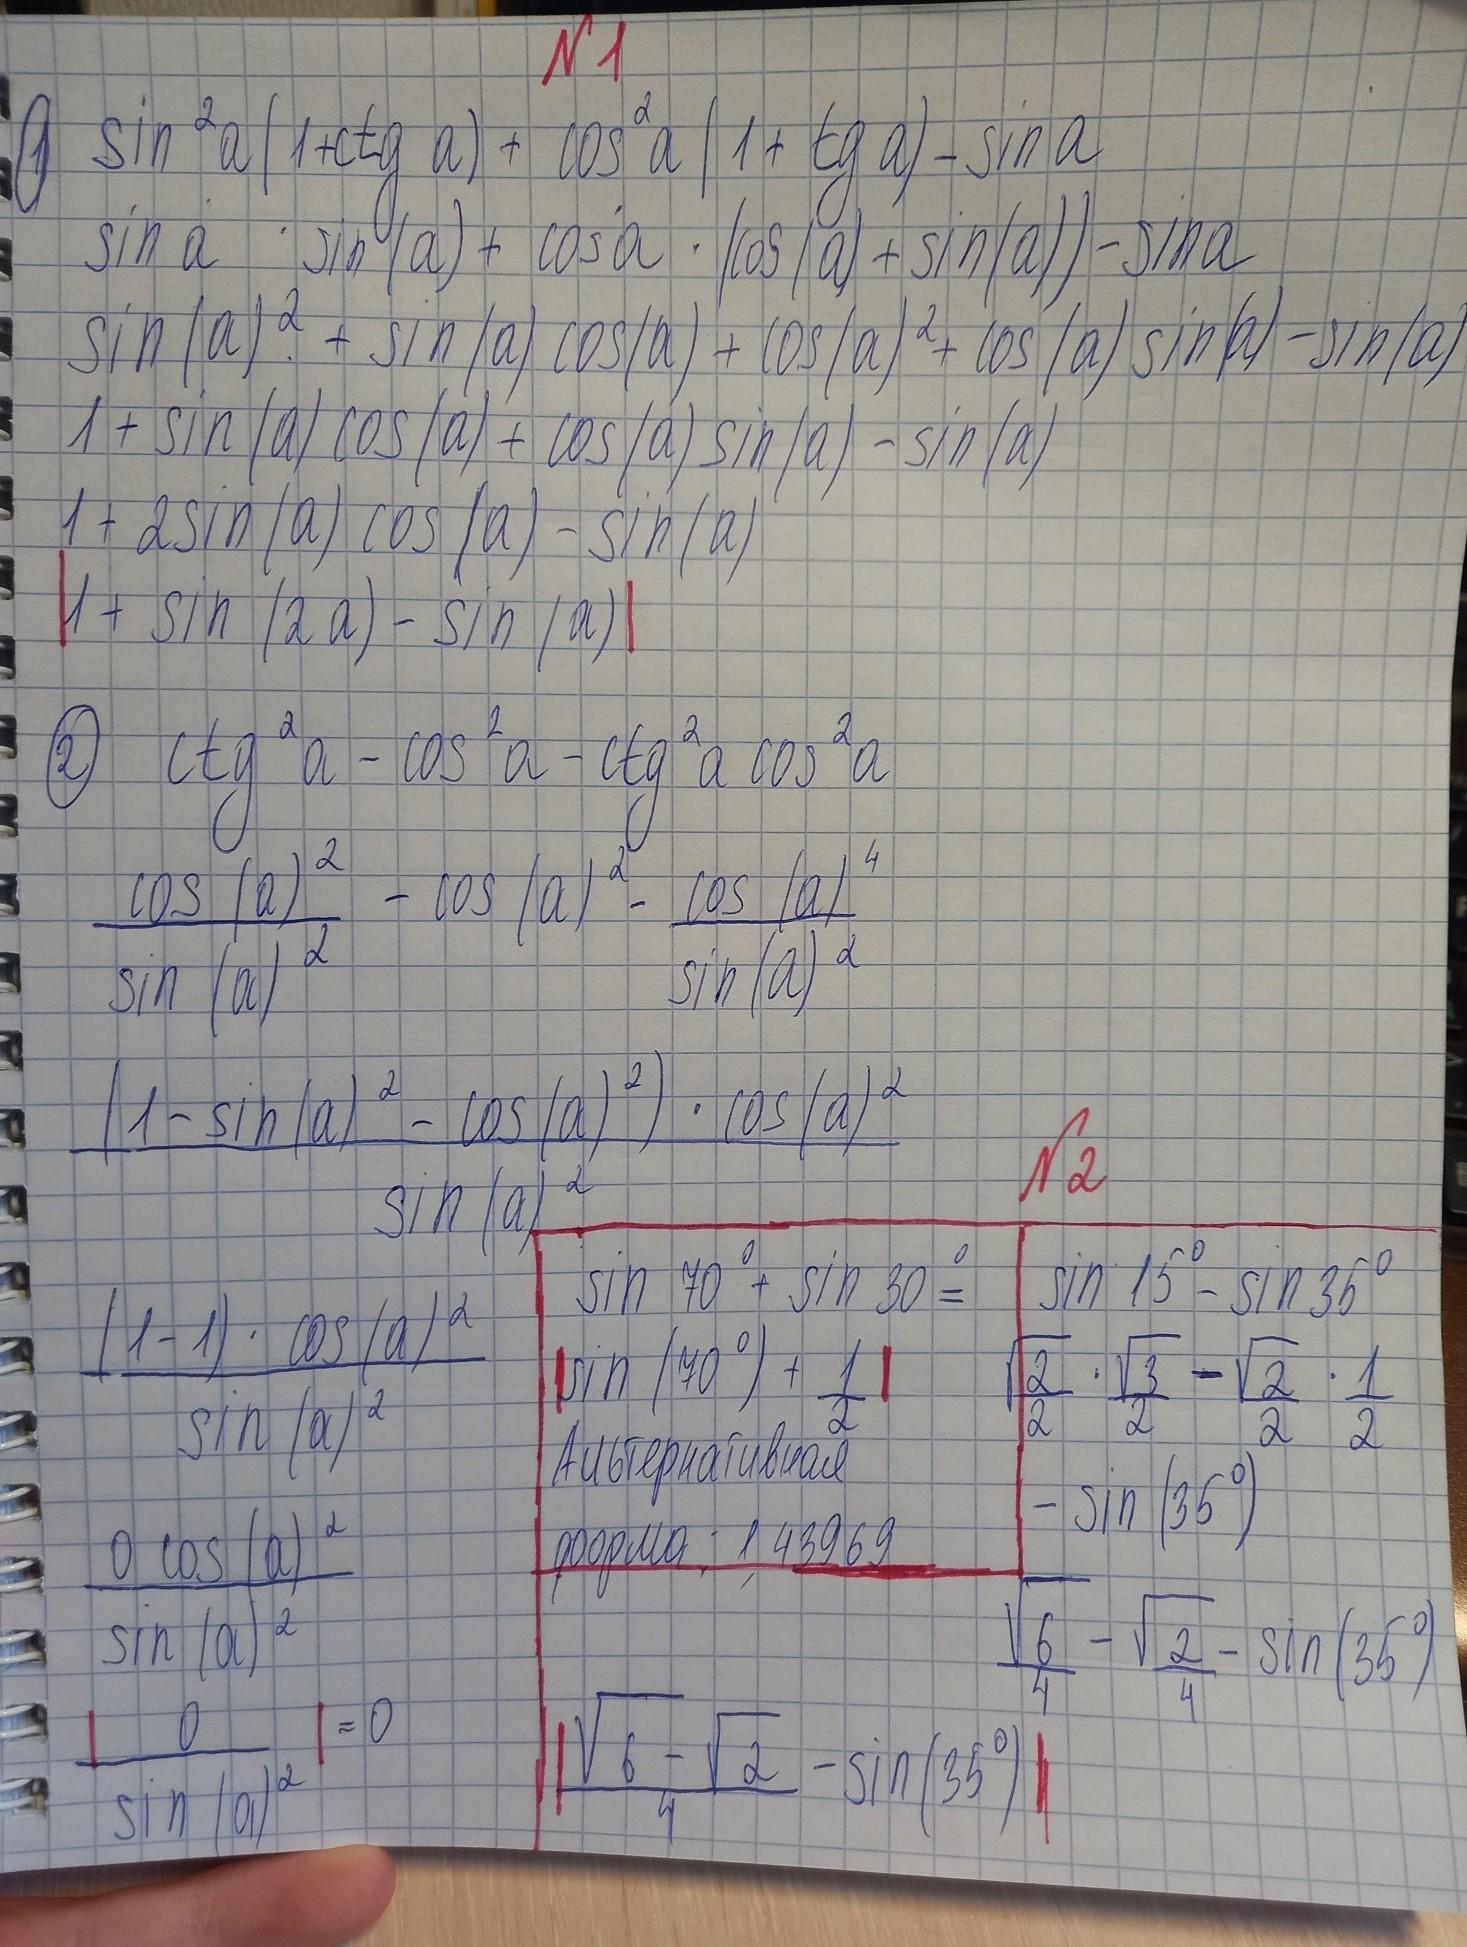 N1
1) sin²a(1+ctg a) + cos²a(1+tg a) - sin a
sin a · sin(a) + cos a · (cos(a) + sin(a)) - sin a
sin(a)² + sin(a) cos(a) + cos(a)² + cos(a) sin(a) - sin(a)
1 + sin(a) cos(a) + cos(a) sin(a) - sin(a)
1 + 2sin(a) cos(a) - sin(a)
|1 + sin(2a) - sin(a)|
2) ctg²a - cos²a - ctg²a cos²a
cos(a)²/sin(a)² - cos(a)² - cos(a)⁴/sin(a)²
(1 - sin(a)² - cos(a)²) · cos(a)²
sin(a)²
(1-1) · cos(a)²
sin(a)²
0 cos(a)²
sin(a)²
| 0/sin(a)² | = 0
N2
sin 70° + sin 30° =
|sin(70°) + 1/2|
Альтернативная
форма: 1,43969
sin 15° - sin 35°
√2/2 · √3/2 - √2/2 · 1/2
- sin(35°)
√6/4 - √2/4 - sin(35°)
|(√6 - √2)/4 - sin(35°)|